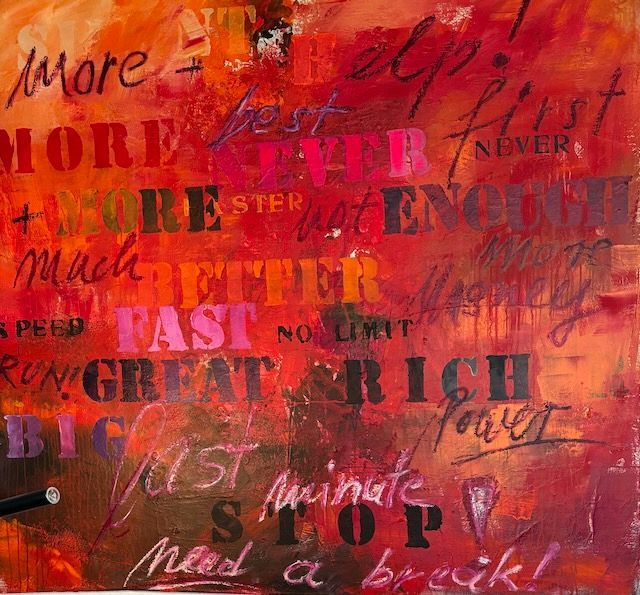 more + Help!
best first
MORE NEVER NEVER
+ MORE FASTER not ENOUGH
much BETTER more
money
SPEED FAST NO LIMIT
RUN! GREAT RICH
BIG Power
last minute !
STOP
need a break!